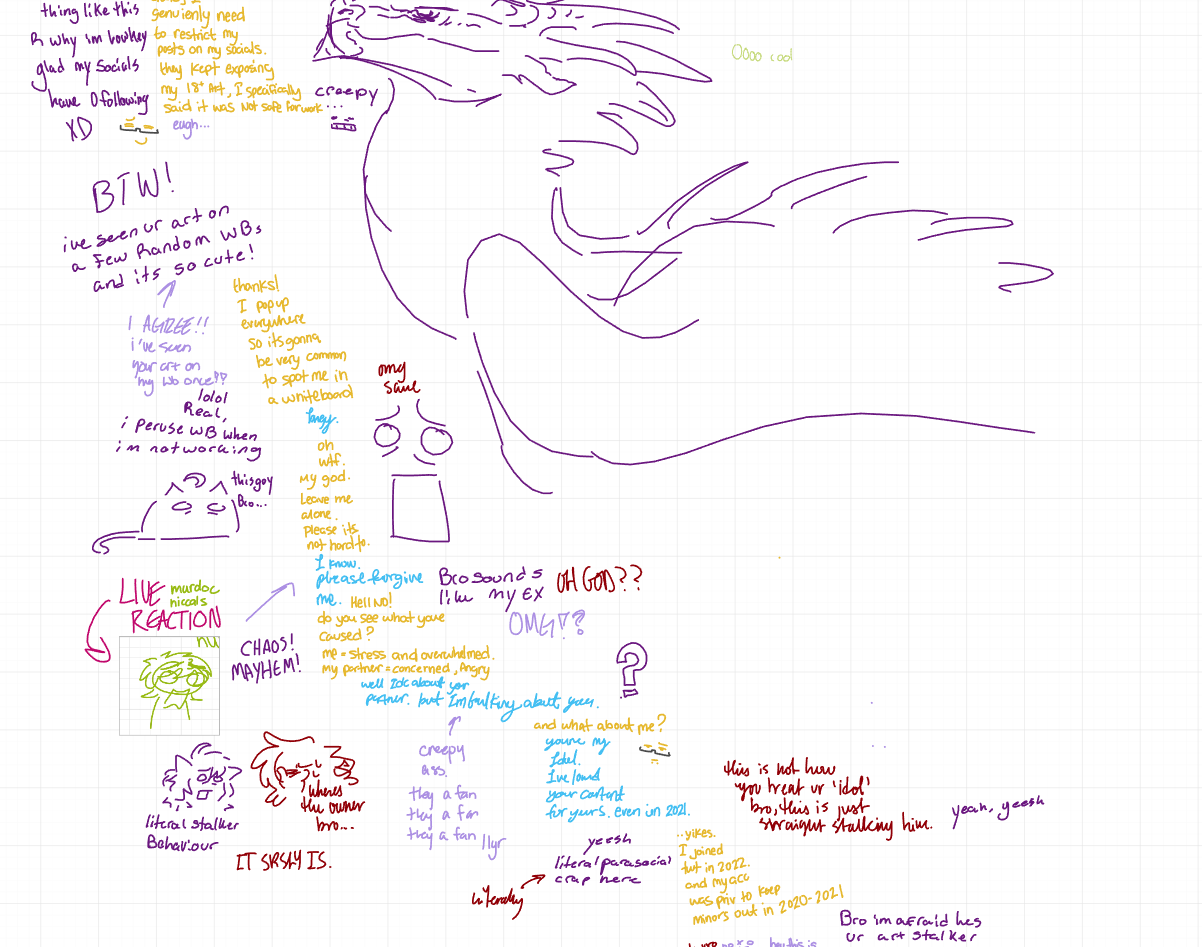 thing like this
R why im lowkey
glad my socials
have 0 following
XD
genuienly need
to restrict my
posts on my socials.
they kept exposing
my 18+ Art, I specifically
said it was not safe for work
eugh...
creepy
...
Oooo cool
BTW!
ive seen ur art on
a few Random WBs
and its so cute!
I AGREE!!
i've seen
your art on
my Wb once??
lolol
Real,
i peruse WB when
i m not working
thanks!
I pop up
everywhere
so its gonna
be very common
to spot me in
a whiteboard
omg
same
oh
wtf.
My god.
Leave me
alone.
please its
not hard to.
this guy
Bro...
I know.
please forgive
me.
Hell NO!
do you see what youve
caused?
me = stress and overwhelmed.
my partner = concerned, Angry
Bro sounds
like my EX
OH GOD??
OMG!?
LIVE
murdoc
niccals
REACTION
nu
CHAOS!
MAYHEM!
?
well Idc about yor
partner. but Im talking about you.
and what about me?
youre my
Idel.
Ive loved
your content
for yeurs. even in 2021.
creepy
ass.
they a fan
they a fan
they a fan
literal stalker
Behaviour
wheres
the owner
bro...
IT SRSLY IS.
this is not how
you treat ur 'idol'
bro, this is just
straight stalking him.
yeah, yeesh
yeesh
literal parasocial
crap here
literally
..yikes.
I joined
twt in 2022.
and my acc
was priv to keep
minors out in 2020-2021
Bro im afraid hes
ur art stalker